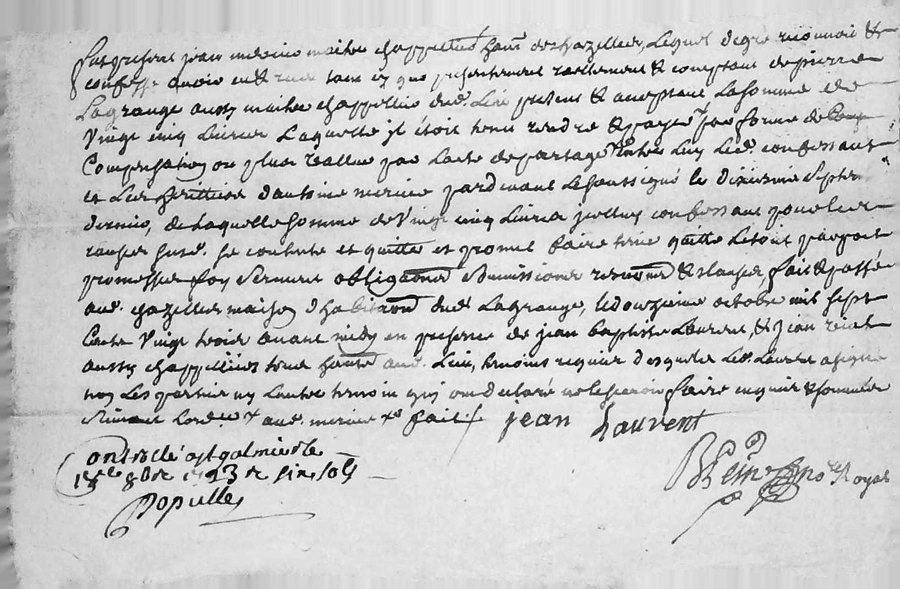 fut present jean mercier maitre chappellier hant. de chazelles, Lequel de gré reconnoit &
confesse avoir eu & receu tout cy que presentement reellement & comptant de pierre
Lagrange aussy maitre chappellier dud. Lieu present & acceptant La somme de
Vingt cinq Livres Laquelle jl étoit tenu rendre & payer par forme de
Compensation ou plus vallue par Lacte de partage Entre Luy Led. confessant
et Les herittiers dantoine mercier pardevant Le soussigné le dixieme Septem
dernier, de Laquelle somme de Vingt cinq Livres jcelluy confessant pour les
causes susd. se contente et quitte et promet faire tenir quitte Le tout par
promesses foy Serment obligations Soumissions renons & clauses, fait & passé
aud. chazelles maison d'habitaon dud. Lagrange, le douzieme octobre mil sept
Cents Vingt trois avant midy en presence de jean baptiste Laurent, & jean
aussy chappelliers tous hants aud. Lieu, temoins requis desquels Led. Laurent a signé
non Les parties ny Lautre temoin qui ont declaré ne le scavoir faire enquis & sommés
Suivant Lord.ce aud. mercier fait
jean Laurent
Controllé a st galmier le
8bre 1723 R six sols
Populle
no.re Royal